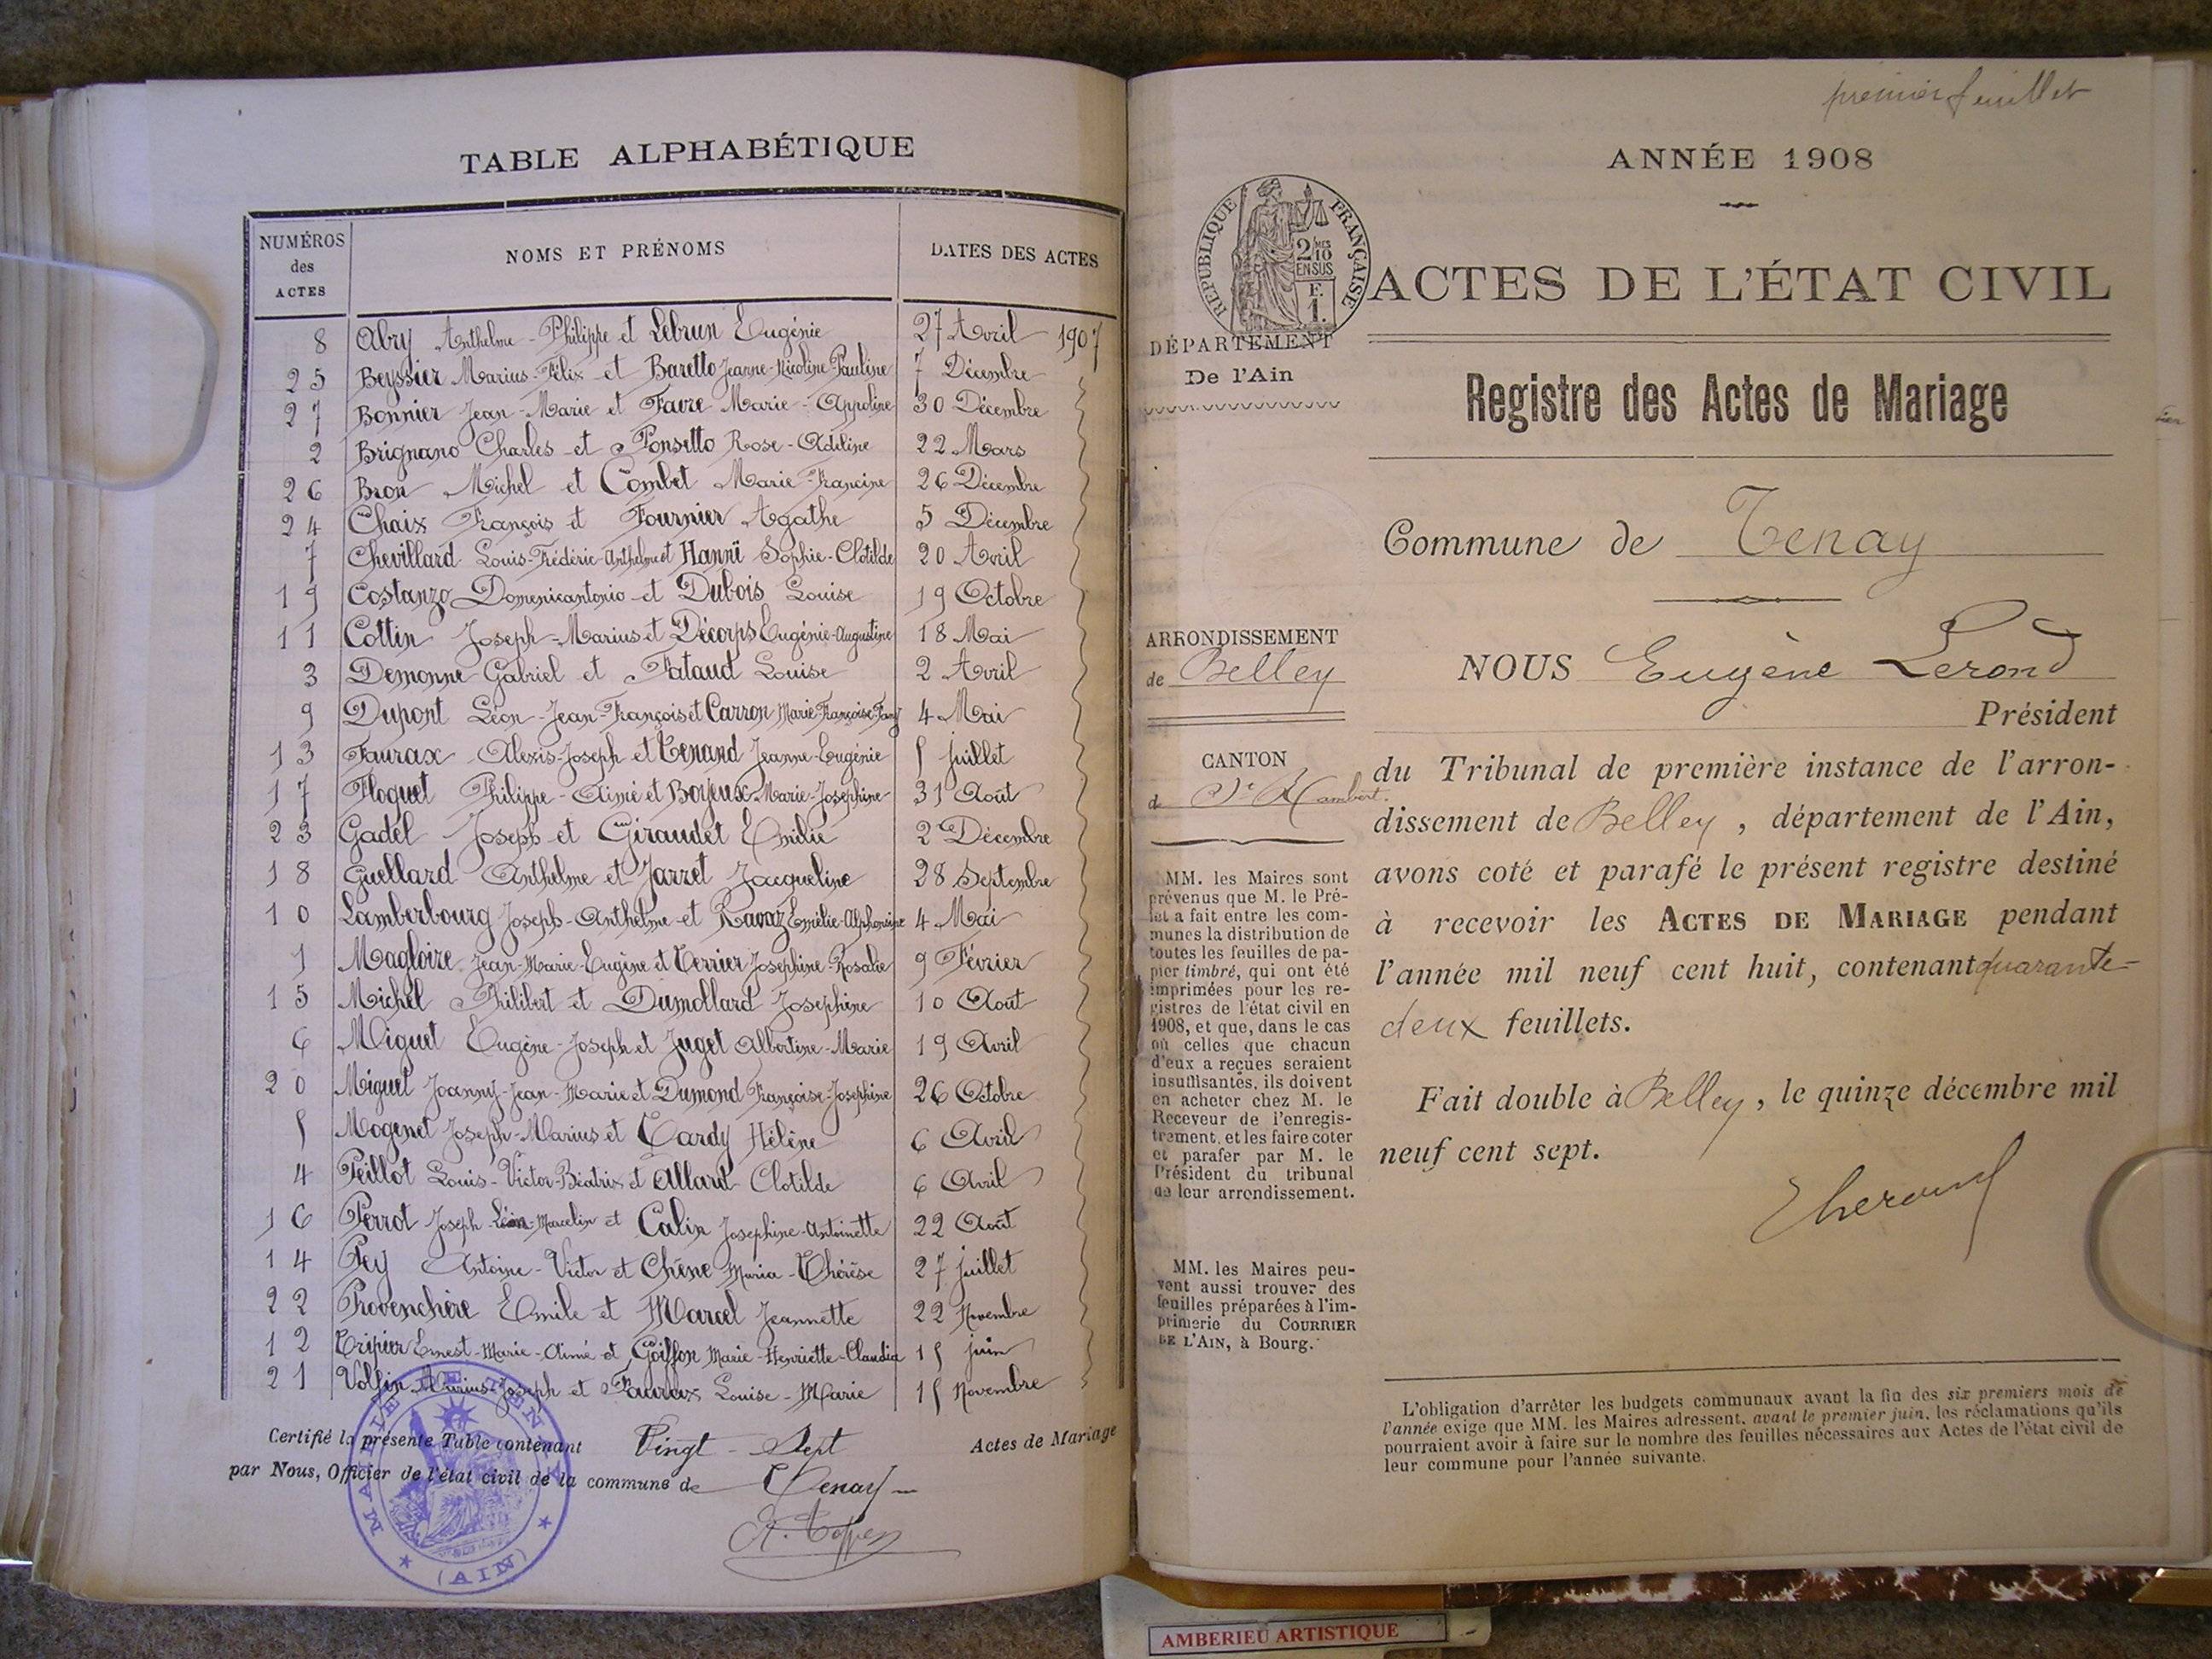 TABLE ALPHABÉTIQUE
NUMÉROS des ACTES
NOMS ET PRÉNOMS
DATES DES ACTES
8 Abry Anthelme-Philippe et Lebrun Eugénie 27 Avril 1907
25 Beyssier Marius-Félix et Baretto Jeanne-Nicoline-Pauline 7 Décembre
27 Bonnier Jean-Marie et Favre Marie-Appoline 30 Décembre
2 Brignano Charles et Ponsetto Rose-Adeline 22 Mars
26 Bron Michel et Combet Marie-Francine 26 Décembre
24 Chaix François et Fournier Agathe 5 Décembre
7 Chevillard Louis-Frédéric-Anthelme et Hanni Sophie-Clotilde 20 Avril
19 Costanzo Domenicantonio et Dubois Louise 19 Octobre
11 Cottin Joseph-Marius et Décorps Eugénie-Augustine 18 Mai
3 Demonne Gabriel et Fataud Louise 2 Avril
9 Dupont Léon-Jean-François et Carron Marie-Françoise-Fany 4 Mai
13 Faurax Alexis-Joseph et Tenand Jeanne-Eugénie 5 juillet
17 Floquet Philippe-Aimé et Boyeux Marie-Josephine 31 Août
23 Gadel Joseph et Giraudet Emilie 2 Décembre
18 Guellard Anthelme et Jarret Jacqueline 28 Septembre
10 Lamberbourg Joseph-Anthelme et Ravaz Emélie-Alphonsine 4 Mai
1 Magloire Jean-Marie-Eugène et Terrier Josephine-Rosalie 9 Février
15 Michel Philibert et Dumollard Josephine 10 Août
6 Miguet Eugène-Joseph et Juget Albertine-Marie 19 Avril
20 Miguet Joanny-Jean-Marie et Dumond Françoise-Josephine 26 Octobre
5 Mogenet Joseph-Marius et Tardy Hélène 6 Avril
4 Peillot Louis-Victor-Béatrix et Allard Clotilde 6 Avril
16 Perrot Joseph-Léon-Marcelin et Calin Josephine-Antoinette 22 Août
14 Pey Antoine-Victor et Chêne Maria-Thérèse 27 juillet
22 Provenchère Emile et Marcel Jeannette 22 Novembre
12 Tripier Ernest-Marie-Aimé et Goiffon Marie-Henriette-Claudia 15 juin
21 Volfin Marius-Joseph et Faurax Louise-Marie 15 Novembre
Certifié la présente Table contenant Vingt-Sept Actes de Mariage
par Nous, Officier de l'état civil de la commune de Tenay
MAIRIE DE TENAY (AIN)
premier feuillet
ANNÉE 1908
RÉPUBLIQUE FRANÇAISE
2/10 MES
EN SUS
F.
1.
ACTES DE L'ÉTAT CIVIL
DÉPARTEMENT
De l'Ain
Registre des Actes de Mariage
Commune de Tenay
ARRONDISSEMENT
de Belley
NOUS Eugène Lerond
Président
CANTON
de St Rambert.
du Tribunal de première instance de l'arron-
dissement de Belley, département de l'Ain,
avons coté et parafé le présent registre destiné
à recevoir les ACTES DE MARIAGE pendant
l'année mil neuf cent huit, contenant quarante-
deux feuillets.
Fait double à Belley, le quinze décembre mil
neuf cent sept.
MM. les Maires sont
prévenus que M. le Pré-
fet a fait entre les com-
munes la distribution de
toutes les feuilles de pa-
pier timbré, qui ont été
imprimées pour les re-
gistres de l'état civil en
1908, et que, dans le cas
où celles que chacun
d'eux a reçues seraient
insuffisantes, ils doivent
en acheter chez M. le
Receveur de l'enregis-
trement, et les faire coter
et parafer par M. le
Président du tribunal
de leur arrondissement.
MM. les Maires peu-
vent aussi trouver des
feuilles préparées à l'im-
primerie du COURRIER
DE L'AIN, à Bourg.
L'obligation d'arrêter les budgets communaux avant la fin des six premiers mois de
l'année exige que MM. les Maires adressent, avant le premier juin, les réclamations qu'ils
pourraient avoir à faire sur le nombre des feuilles nécessaires aux Actes de l'état civil de
leur commune pour l'année suivante.
AMBERIEU ARTISTIQUE